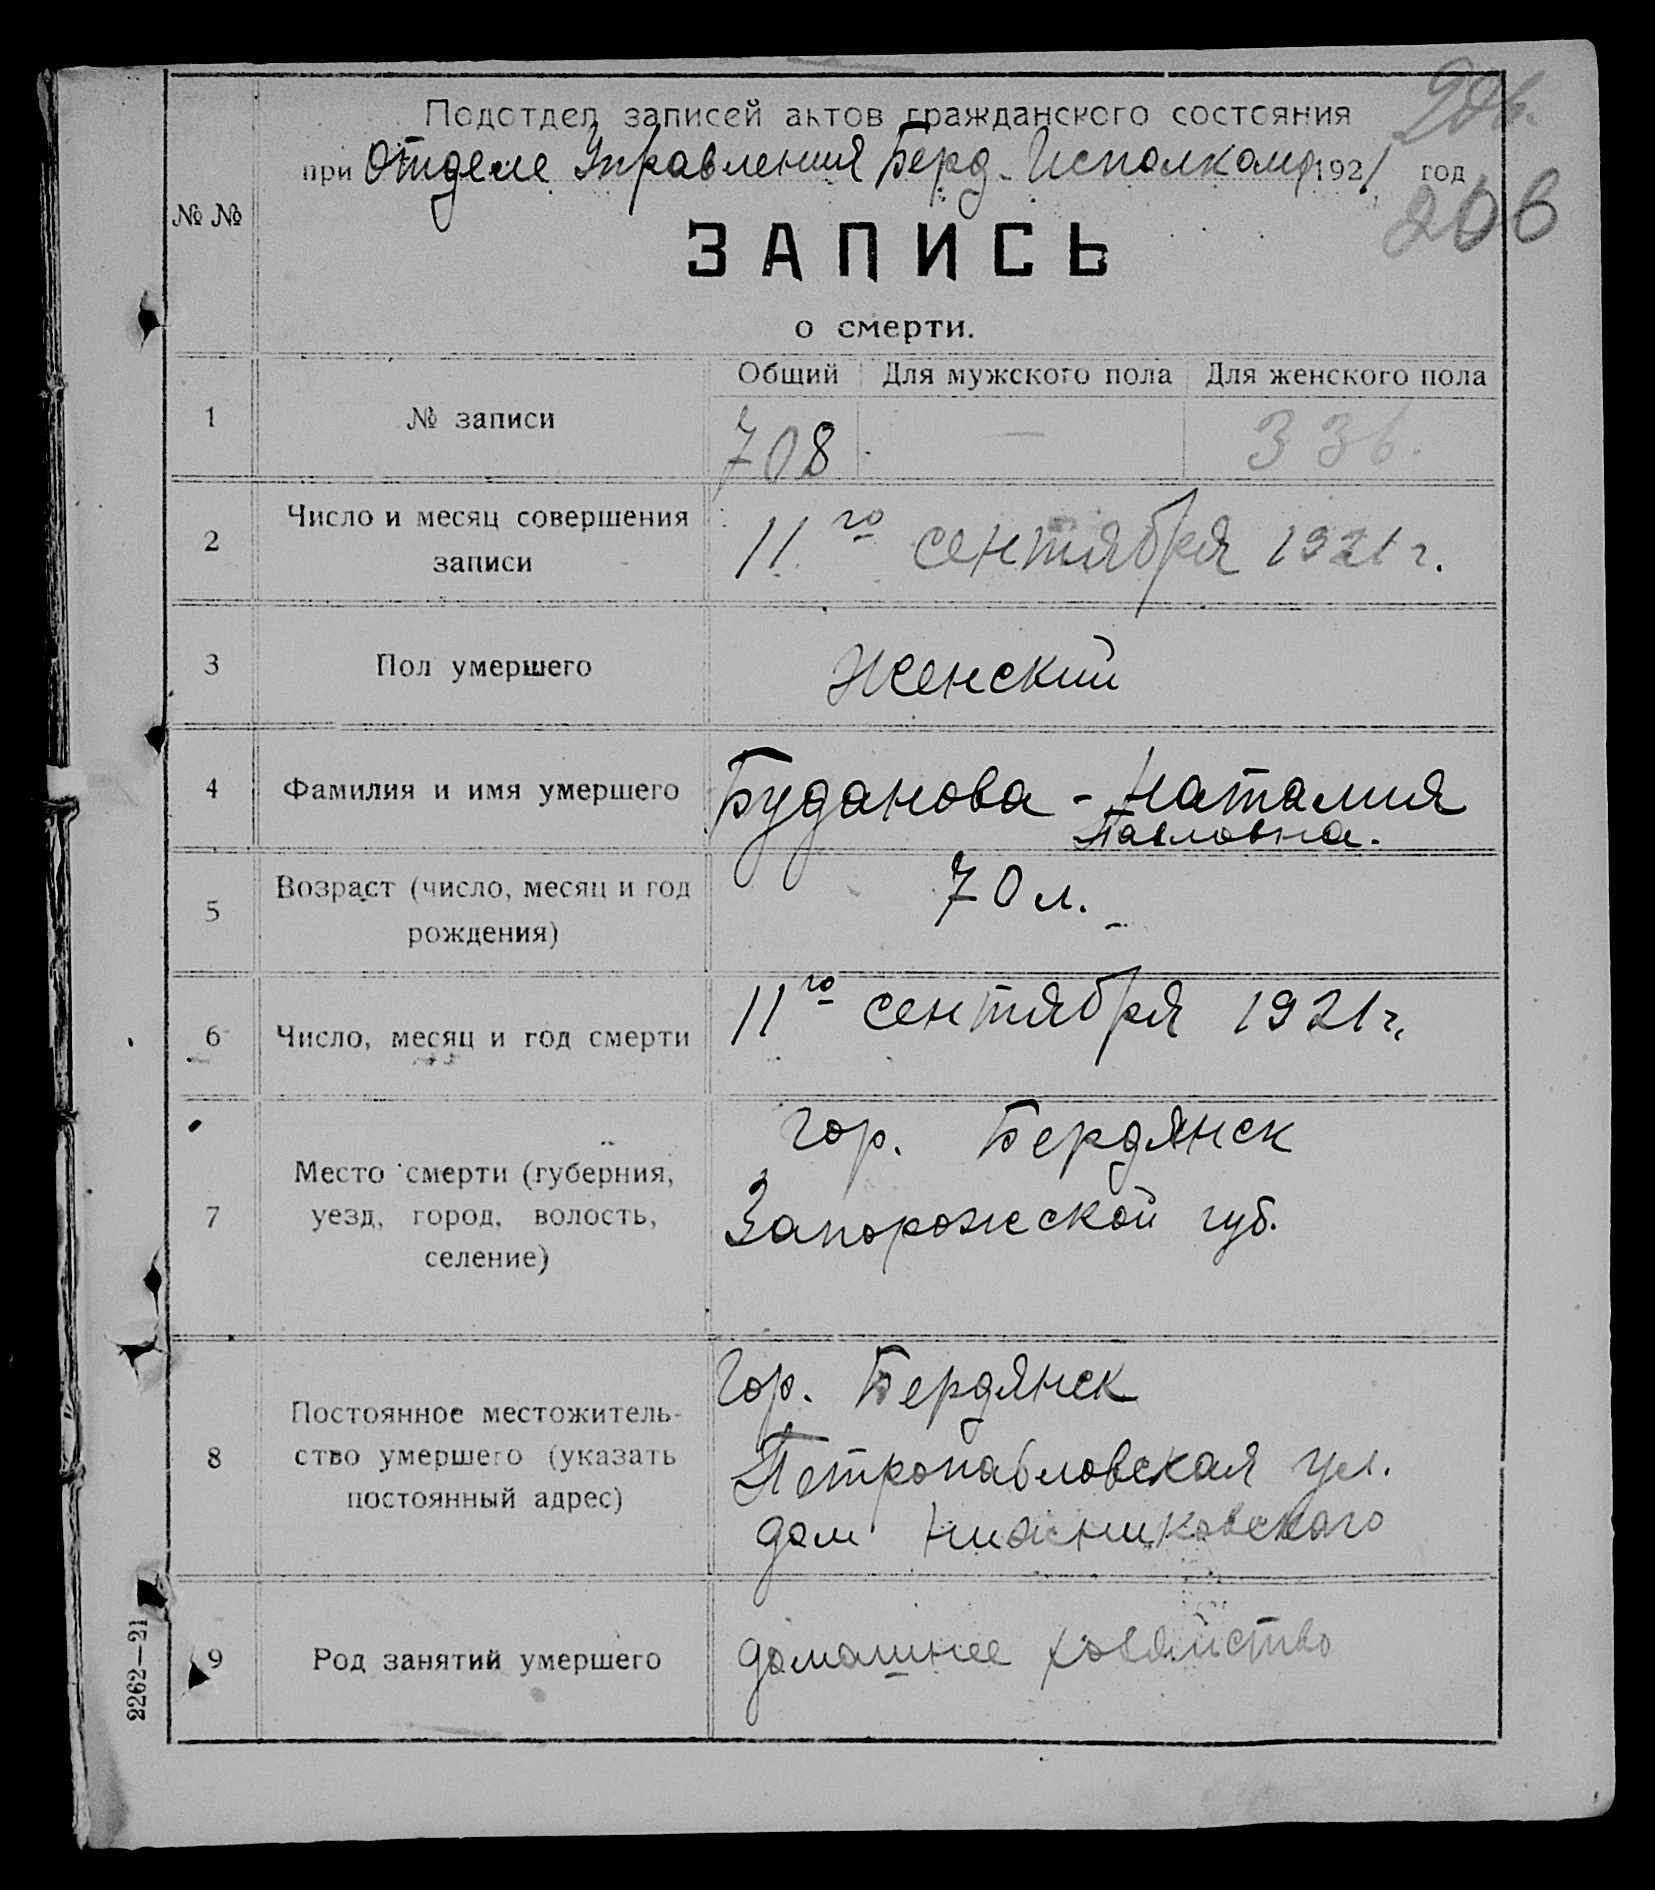 206.
Подотдел записей актов гражданского состояния
при Отделе Управления Берд. Исполкома 1921 год
206
№ №
ЗАПИСЬ
о смерти.
Общий Для мужского пола Для женского пола
1 № записи 708 — 336.
2 Число и месяц совершения 11го сентября 1921 г.
записи
3 Пол умершего Женский
4 Фамилия и имя умершего Буданова - Наталия
Павловна.
5 Возраст (число, месяц и год 70 л.
рождения)
6 Число, месяц и год смерти 11го сентября 1921 г.
гор. Бердянск
7 Место смерти (губерния, Запорожской губ.
уезд, город, волость,
селение)
Гор. Бердянск
8 Постоянное местожитель- Петропавловская ул.
ство умершего (указать дом Нижниковского
постоянный адрес)
9 Род занятий умершего домашнее хозяйство
2262—21